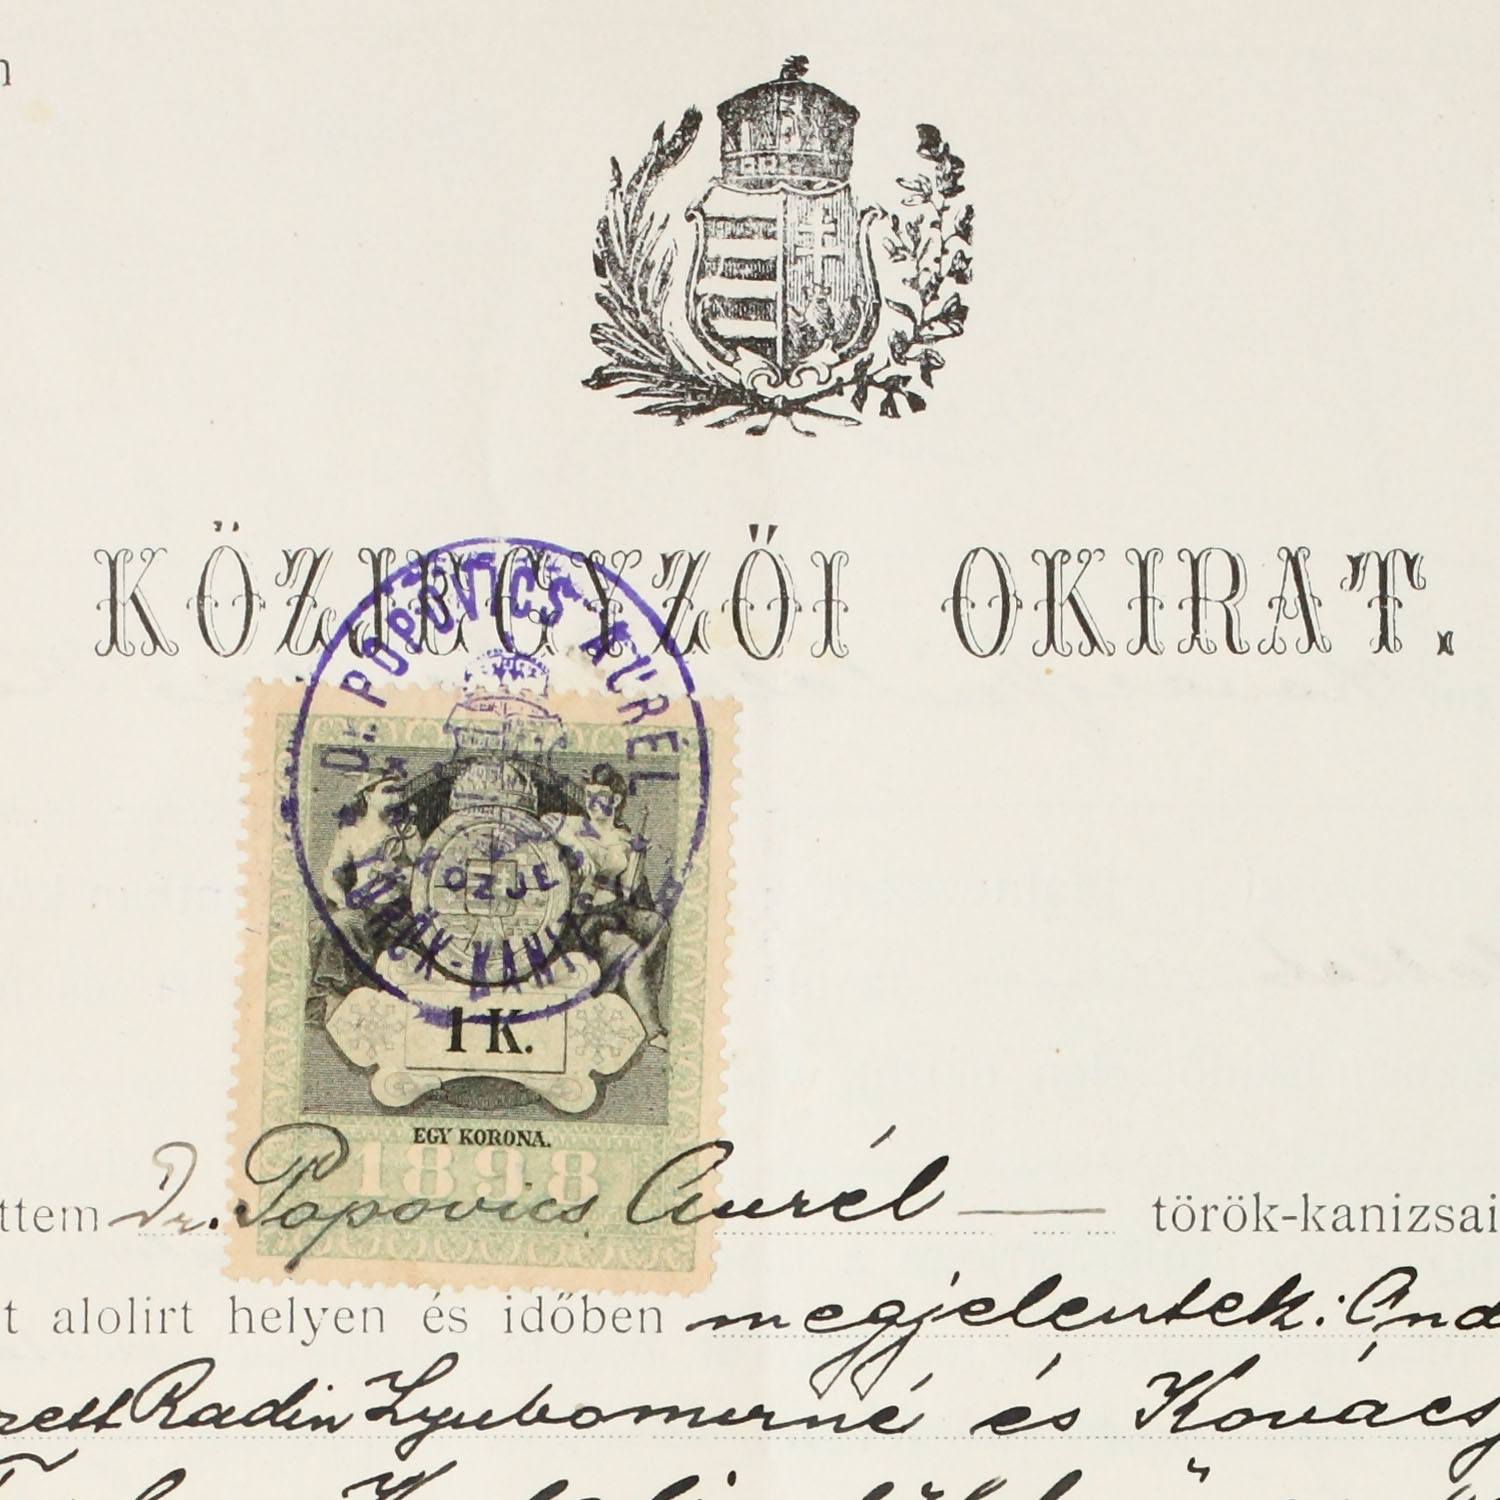 KÖZJEGYZŐI OKIRAT.
Dr. POPOVICS AURÉL
KÖZJEGYZŐ
TÖRÖK-KANIZSA
1 K.
EGY KORONA.
1898
ttem Dr. Popovics Aurél török-kanizsai
t alolirt helyen és időben megjelentek: And
rett Radin Lyubomirné és Kovács